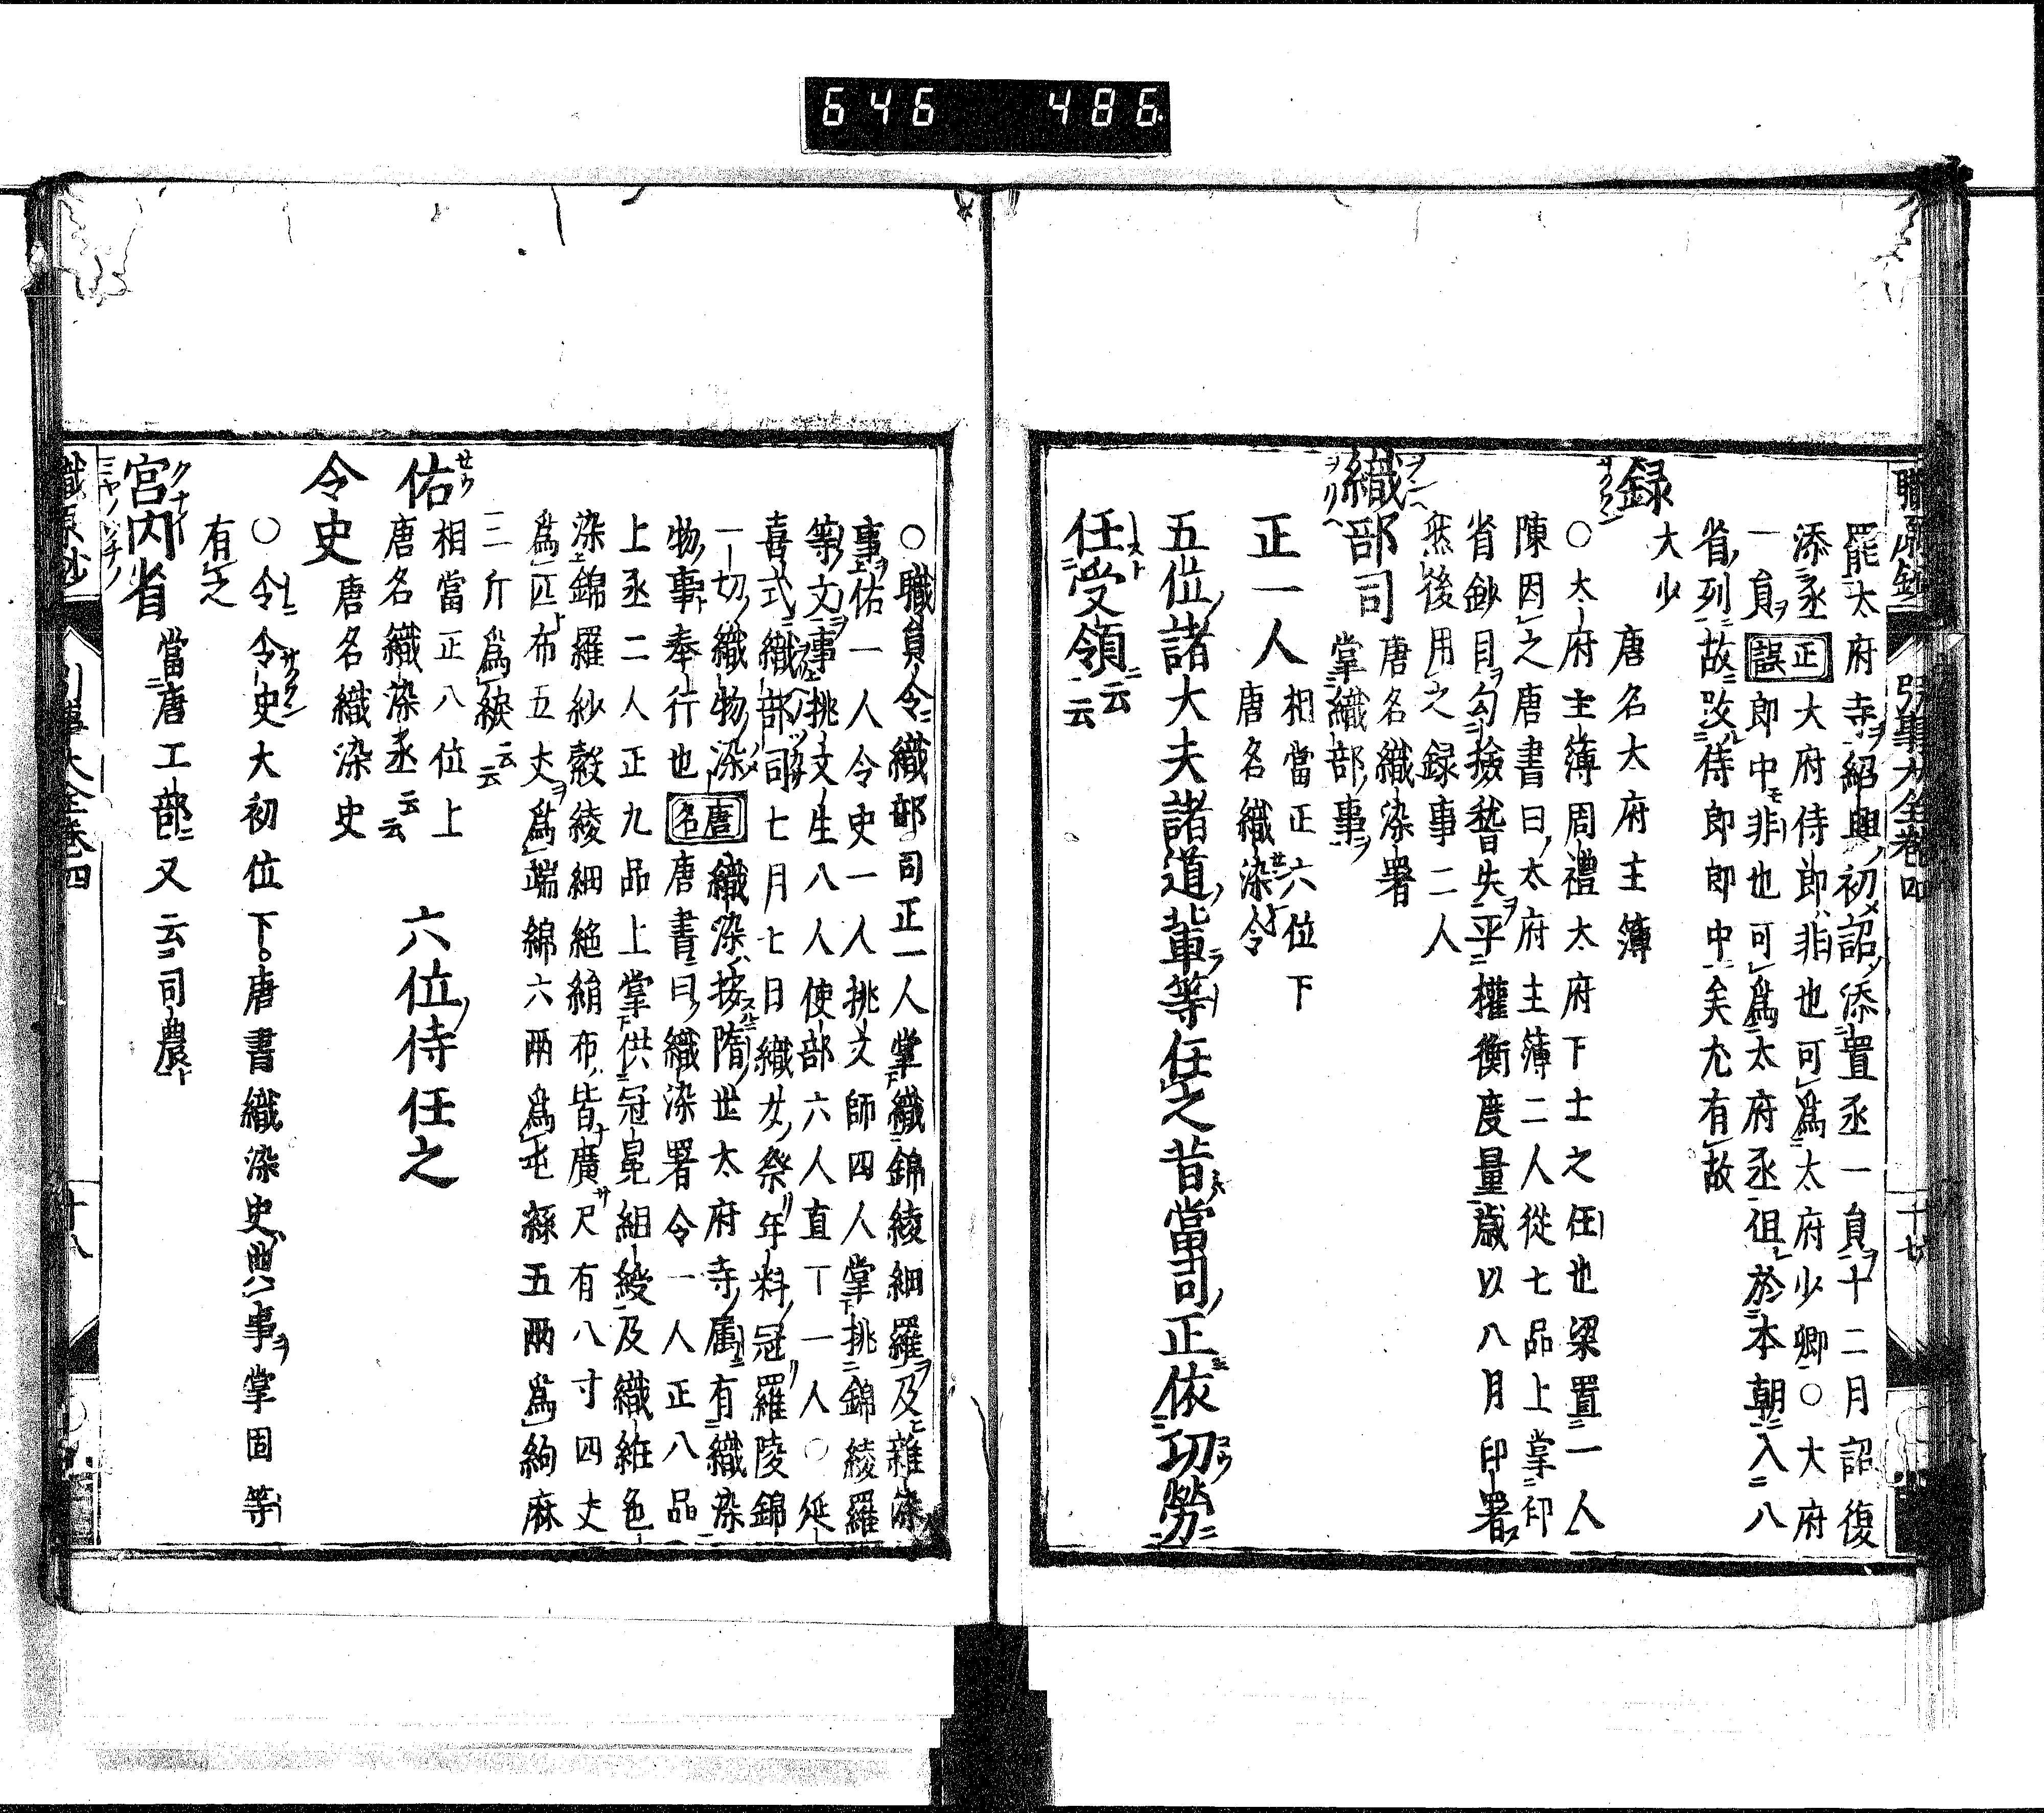 646 486
職原鈔 引事大全卷四 十七
罷太府寺紹興初詔添置丞一員十二月詔復
添丞正大府侍郎非也可爲太府少卿○大府
一員誤郎中非也可爲太府丞徂於本朝入八
省列故改侍郎郎中矣尤有故
録 大少 唐名大府主簿
○大府主簿周禮太府下士之任也梁置一人
陳因之唐書曰太府主簿二人從七品上掌印
省鈔目勾撿嵆失平權衡度量歳以八月印署
然後用之録事二人
織部司 唐名織染署
掌織部事
正一人 相當正六位下
唐名織染令
五位諸大夫諸道軰等任之昔當司正依功勞
任受領云云
○職員令織部司正一人掌織錦綾細羅及雜染
事佑一人令史一人挑文師四人掌挑錦綾羅
等文事挑文生八人使部六人直丁一人○延
喜式織部司七月七日織女祭年料冠羅陵錦
一切織物染唐織染按隋世太府寺属有織染
物事奉行也名唐書曰織染署令一人正八品
上丞二人正九品上掌供冠冕組綬及織紝色
染錦羅紗縠綾細絁絹布皆廣尺有八寸四丈
爲匹布五丈爲端綿六兩爲屯絲五兩爲絇麻
三斤爲綟云云
佑 相當正八位上
唐名織染丞云云 六位侍任之
令史 唐名織染史
○令令史大初位下唐書織染史典事掌固等
有之
宮内省 當唐工部又云司農
職原鈔 引事大全卷四 十八